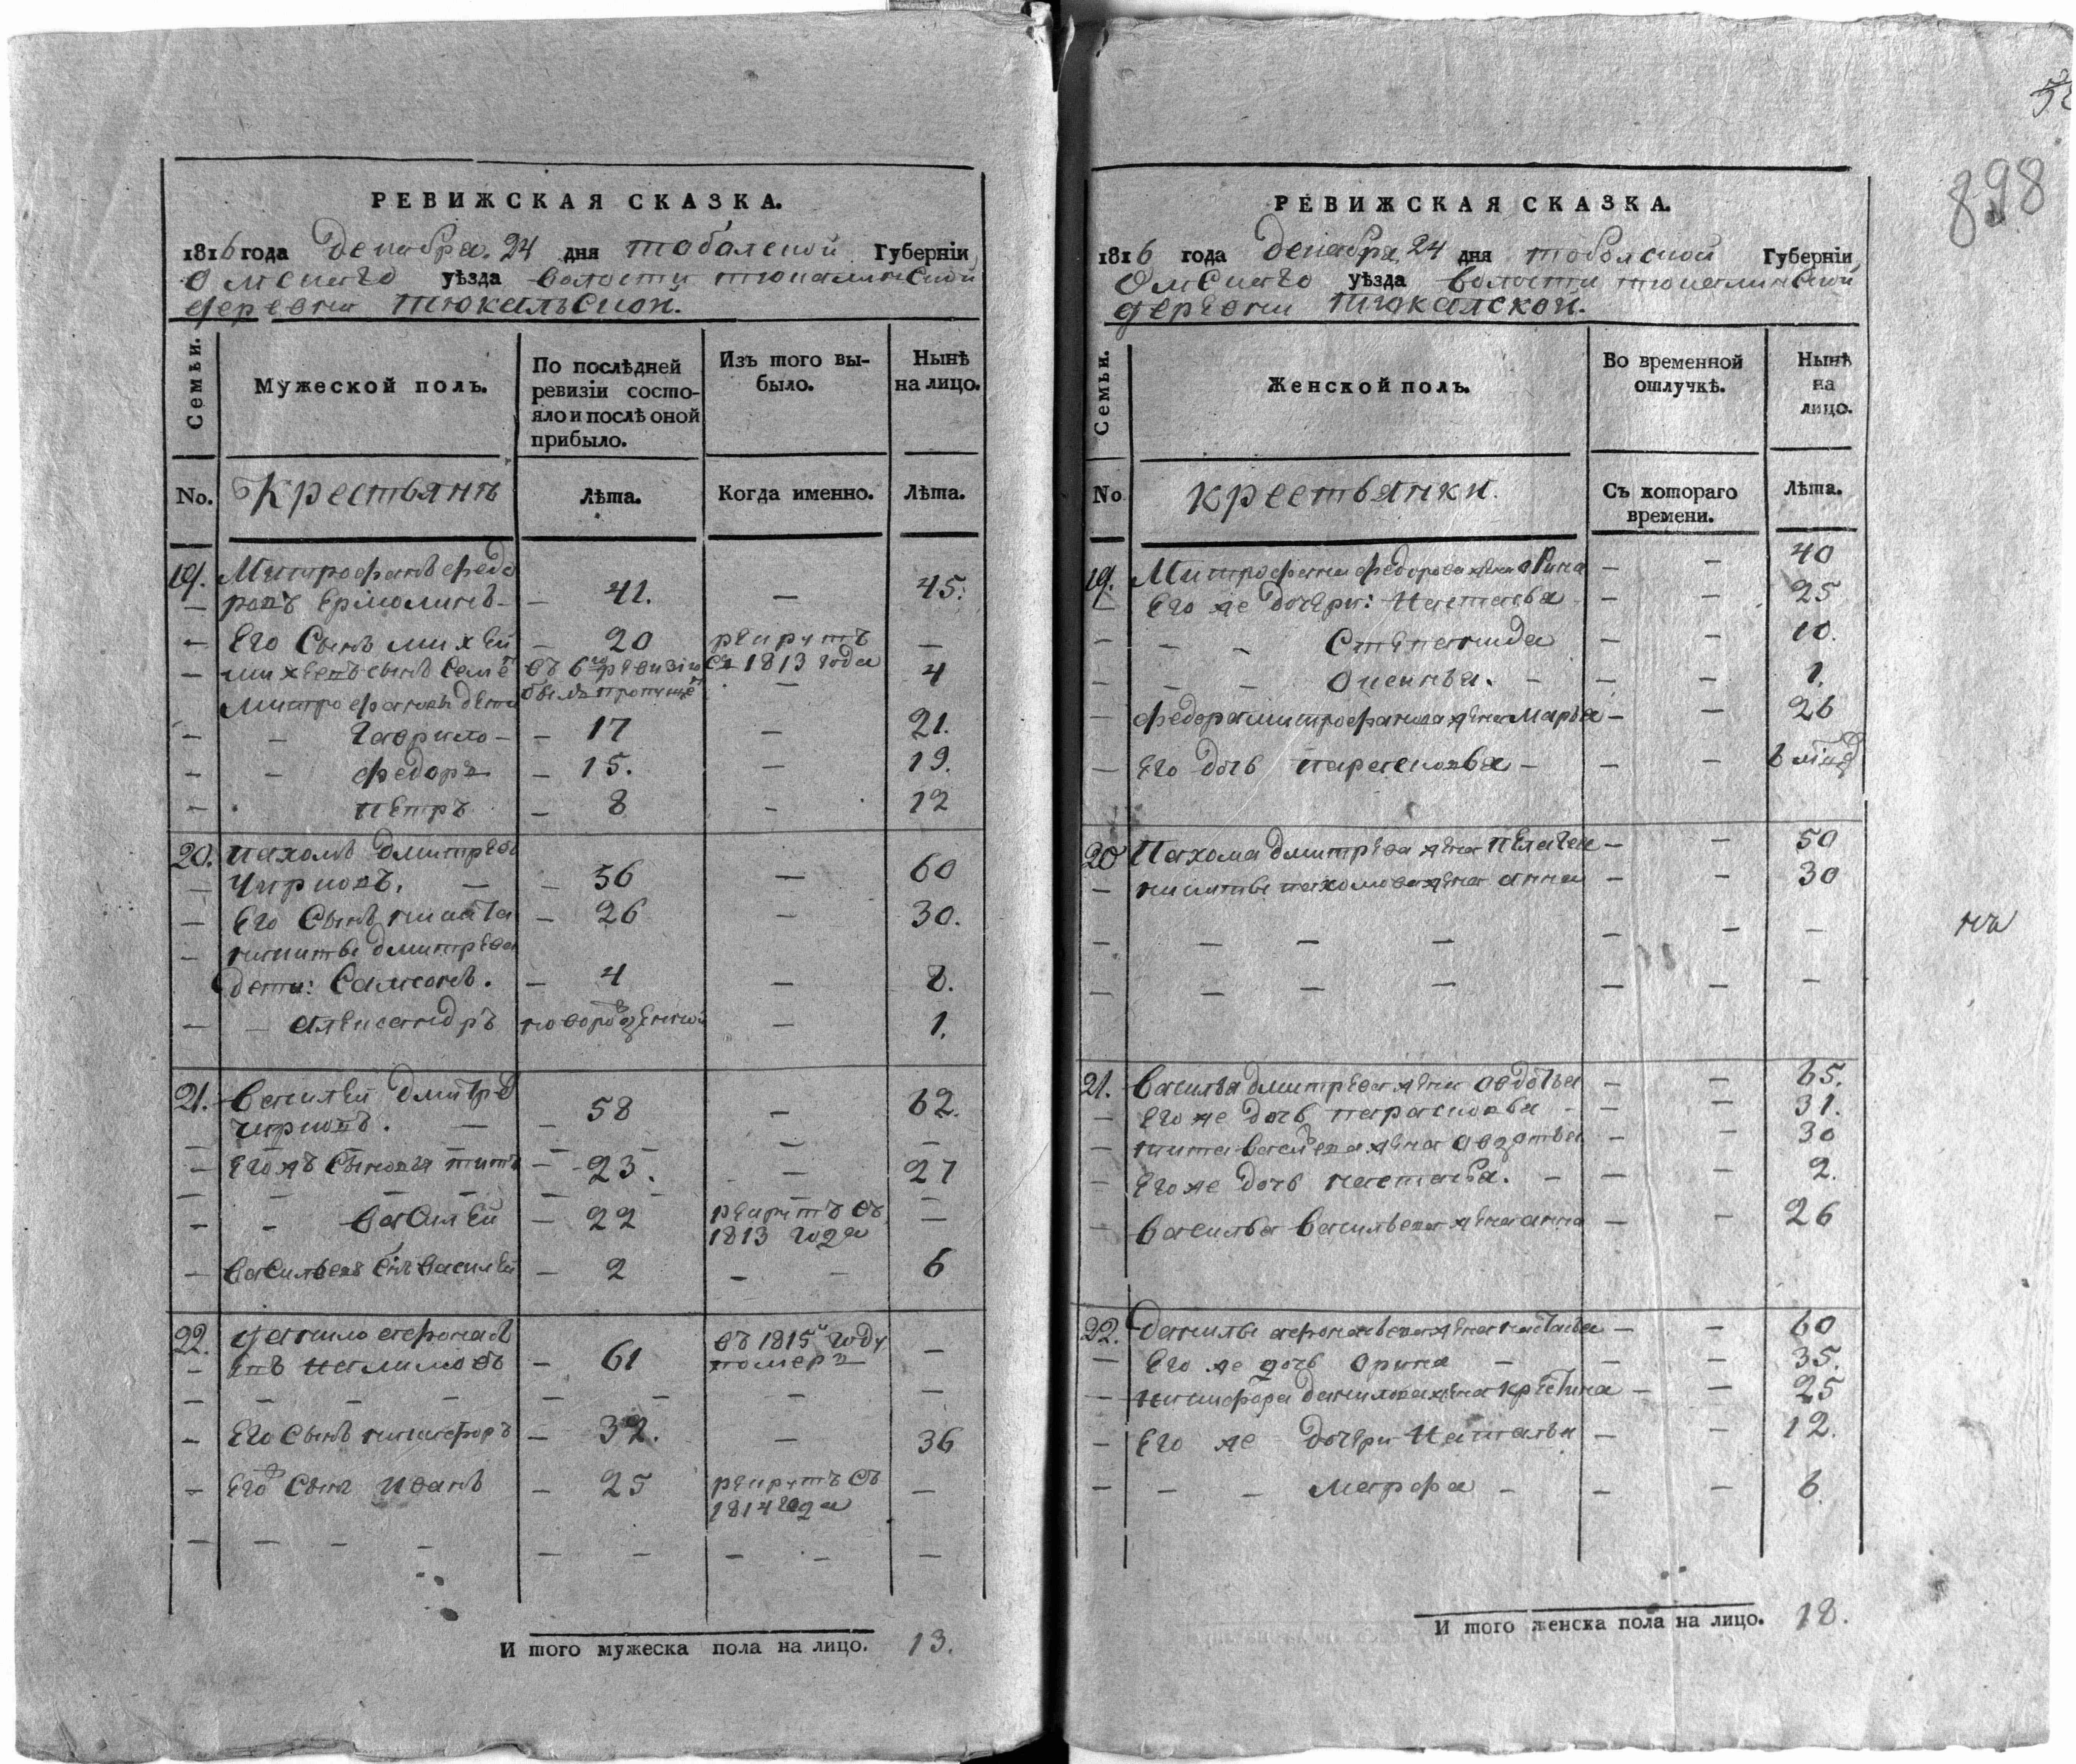 РЕВИЖСКАЯ СКАЗКА.
1816 года Декабря 24 дня тобольской Губерніи
Омскаго уѣзда волости тюкалинской
деревни тюкальской.
Семьи.
Мужеской полъ.
По послѣдней ревизіи состо-
яло и послѣ оной прибыло.
Изъ того вы-
было.
Нынѣ
на лицо.
No.
Крестьянъ
Лѣта.
Когда именно.
Лѣта.
19. Митрофанъ федо
ровъ Ермолинъ - - 41. - 45.
- Его Сынъ михей - 20 рекрутъ -
- михеевъ сынъ Семе въ 6ю ревизію съ 1813 года 4
Митрофановы дети былъ пропуще -
- - Гаврило - - 17 - 21.
- - федоръ - 15. - 19.
- петръ - 8 - 12
20. пахомъ дмитрев
- Чирковъ. - - 56 - 60
- Его Сынъ никита - 26 - 30.
- никиты дмитрева
дети: Самсонъ. - 4 - 8.
- - александръ новорожденной - 1.
21. василей дмитрев
чирковъ. - - 58 - 62.
- Его жъ Сыновья титъ - 23. - 27
- - василей - 22 рекрутъ съ -
1813 года
- васильевъ Сынъ василей - 2 - - 6
22. данило афонась въ 1815 году
- евъ налимовъ - 61 померъ -
- - - - - - - -
- Его Сынъ никифоръ - 32. - 36
- Его Сынъ иванъ - 25 рекрутъ съ -
1814 года
- - - - - - - - -
И того мужеска пола на лицо. 13.
898
РЕВИЖСКАЯ СКАЗКА.
1816 года декабря 24 дня тобольской Губерніи
Омскаго уѣзда волости тюкалинской
деревни тюкалской.
Семьи.
Женской полъ.
Во временной
отлучкѣ.
Нынѣ
на
лицо.
No
крестьянки.
Съ котораго
времени.
Лѣта.
19. Митрофана федорова жена арина - - 40
- Его же дочери: Настасья - - 25
- - - Степанида - - 10.
- - - Оксинья. - - - 1.
- федора митрофанова жена Марья - - 26
- Его дочь парасковья - - - 6
20 Пахома дмитрева жена пелагея - - 50
- никиты пахомова жена анна - - 30
- - - - - - -
- - - - - - -
21. василья дмитрева жена авдотья - - 65.
- Его же дочь парасковья - - - 31.
- тита васильева жена авдотья - - 30
- Его же дочь настасья. - - - 2.
- василья васильева жена анна - - 26
22. данилы афонасьева жена настасья - - 60
- Его же дочь орина - - - 35.
- никифора данилова жена кристина - - 25
- Его же дочери Наталья - - 12.
- - - марфа - - - 6.
И того женска пола на лицо. 18.